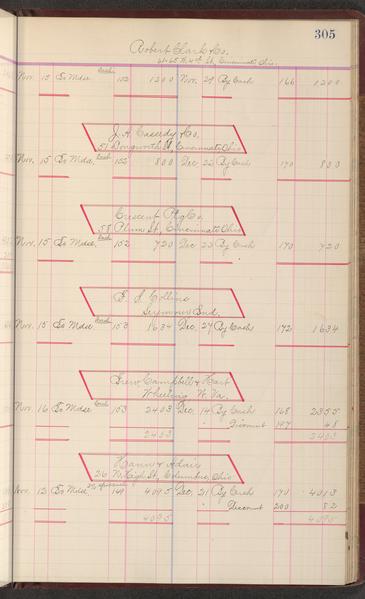 305
Robert Clark & Co.
61-65 W. 4th St, Cincinnati Ohio.
Nov. 15 To Mdse. Cash 152 1200 Nov. 29 By Cash 166 1200
J. A. Cassedy & Co.
51 Longworth St, Cincinnati Ohio
Nov. 15 To Mdse. Cash 152 800 Dec 22 By Cash 170 800
Crescent Ptg Co.
58 Plum St, Cincinnati Ohio
Nov. 15 To Mdse. Cash 152 720 Dec 23 By Cash 170 720
E. J. Collins
Seymour Ind.
Nov. 15 To Mdse Cash 153 1634 Dec. 27 By Cash 172 1634
Campbell & Hart
Wheeling W. Va.
Nov. 16 To Mdse Cash 153 2403 Dec. 14 By Cash 168 2355
" Discount 197 48
2403 2403
Hann & Adair
26 N. High St, Columbus, Ohio
Nov. 12 To Mdse. 149 4095 Dec. 21 By Cash 170 4013
" Discount 200 82
4095 4095